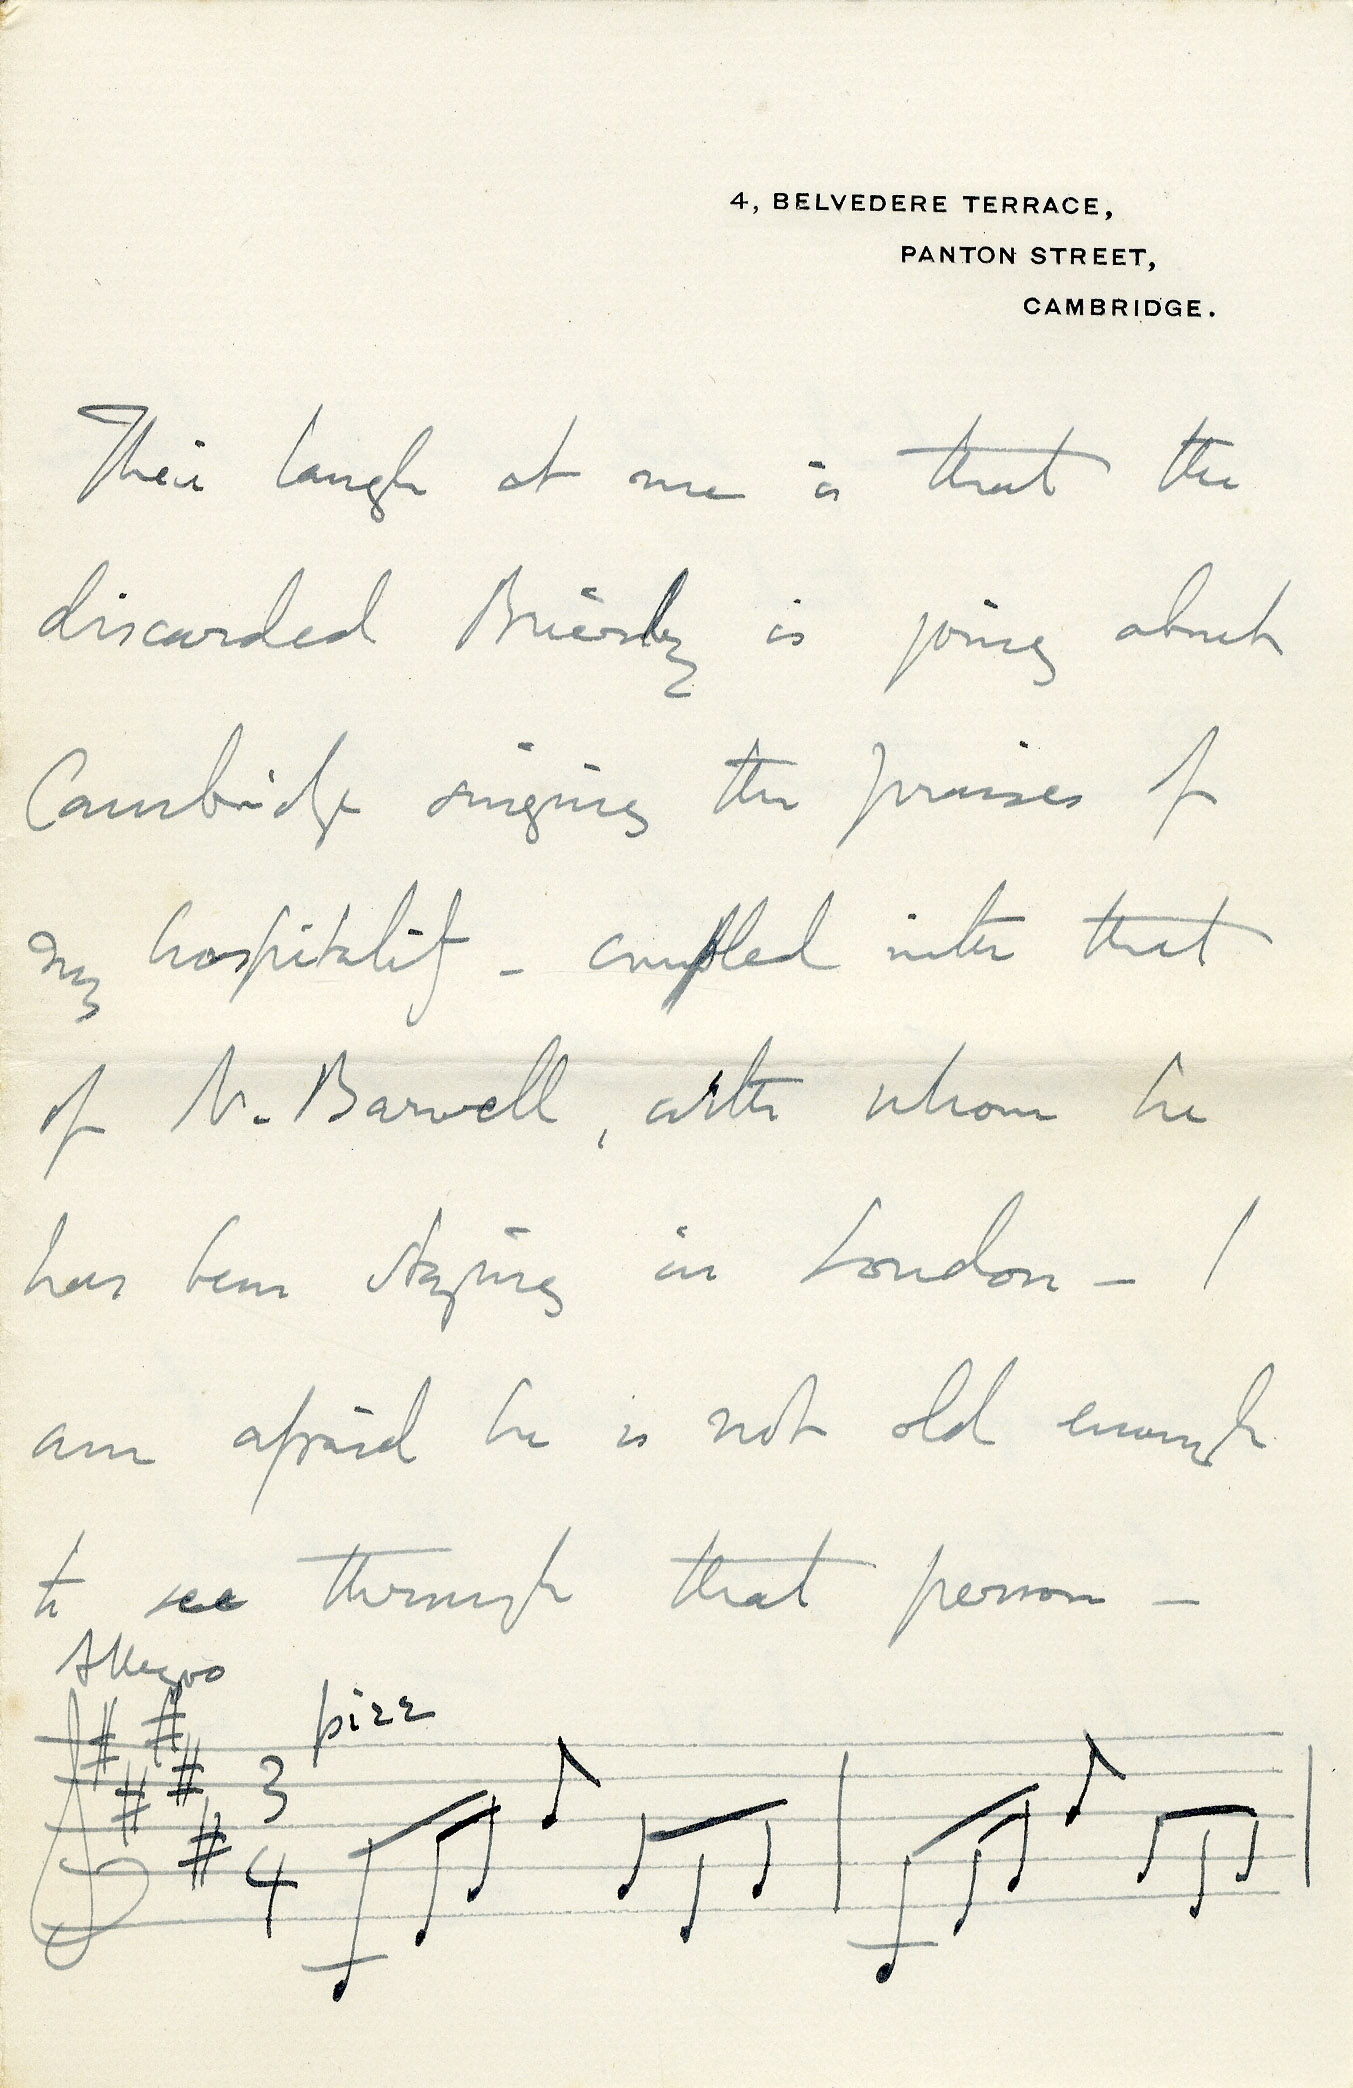 4, BELVEDERE TERRACE,
PANTON STREET,
CAMBRIDGE.
Their laugh at me is that the
discarded Brierly is going about
Cambridge singing the praises of
my hospitality – coupled with that
of Barwell, with whom he
has been staying in London – I
am afraid he is not old enough
to see through that person –
Allegro
pizz
3
4